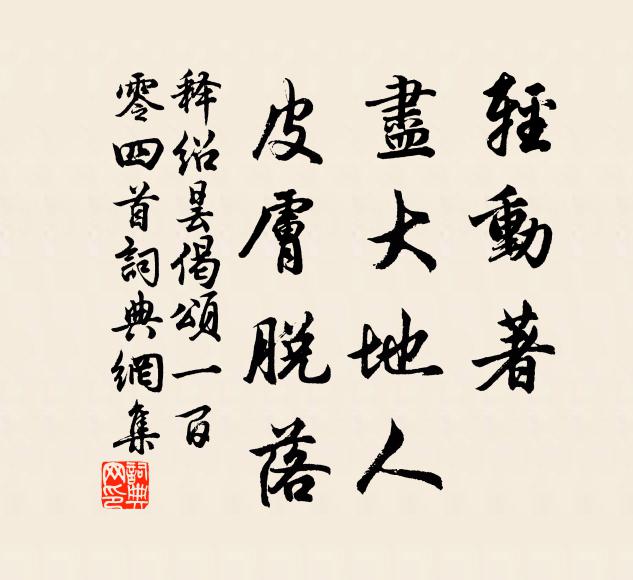 輕動著
盡大地人
皮膚脫落
释紹昙偈頌一百
零四首詞典網集
詞典网印